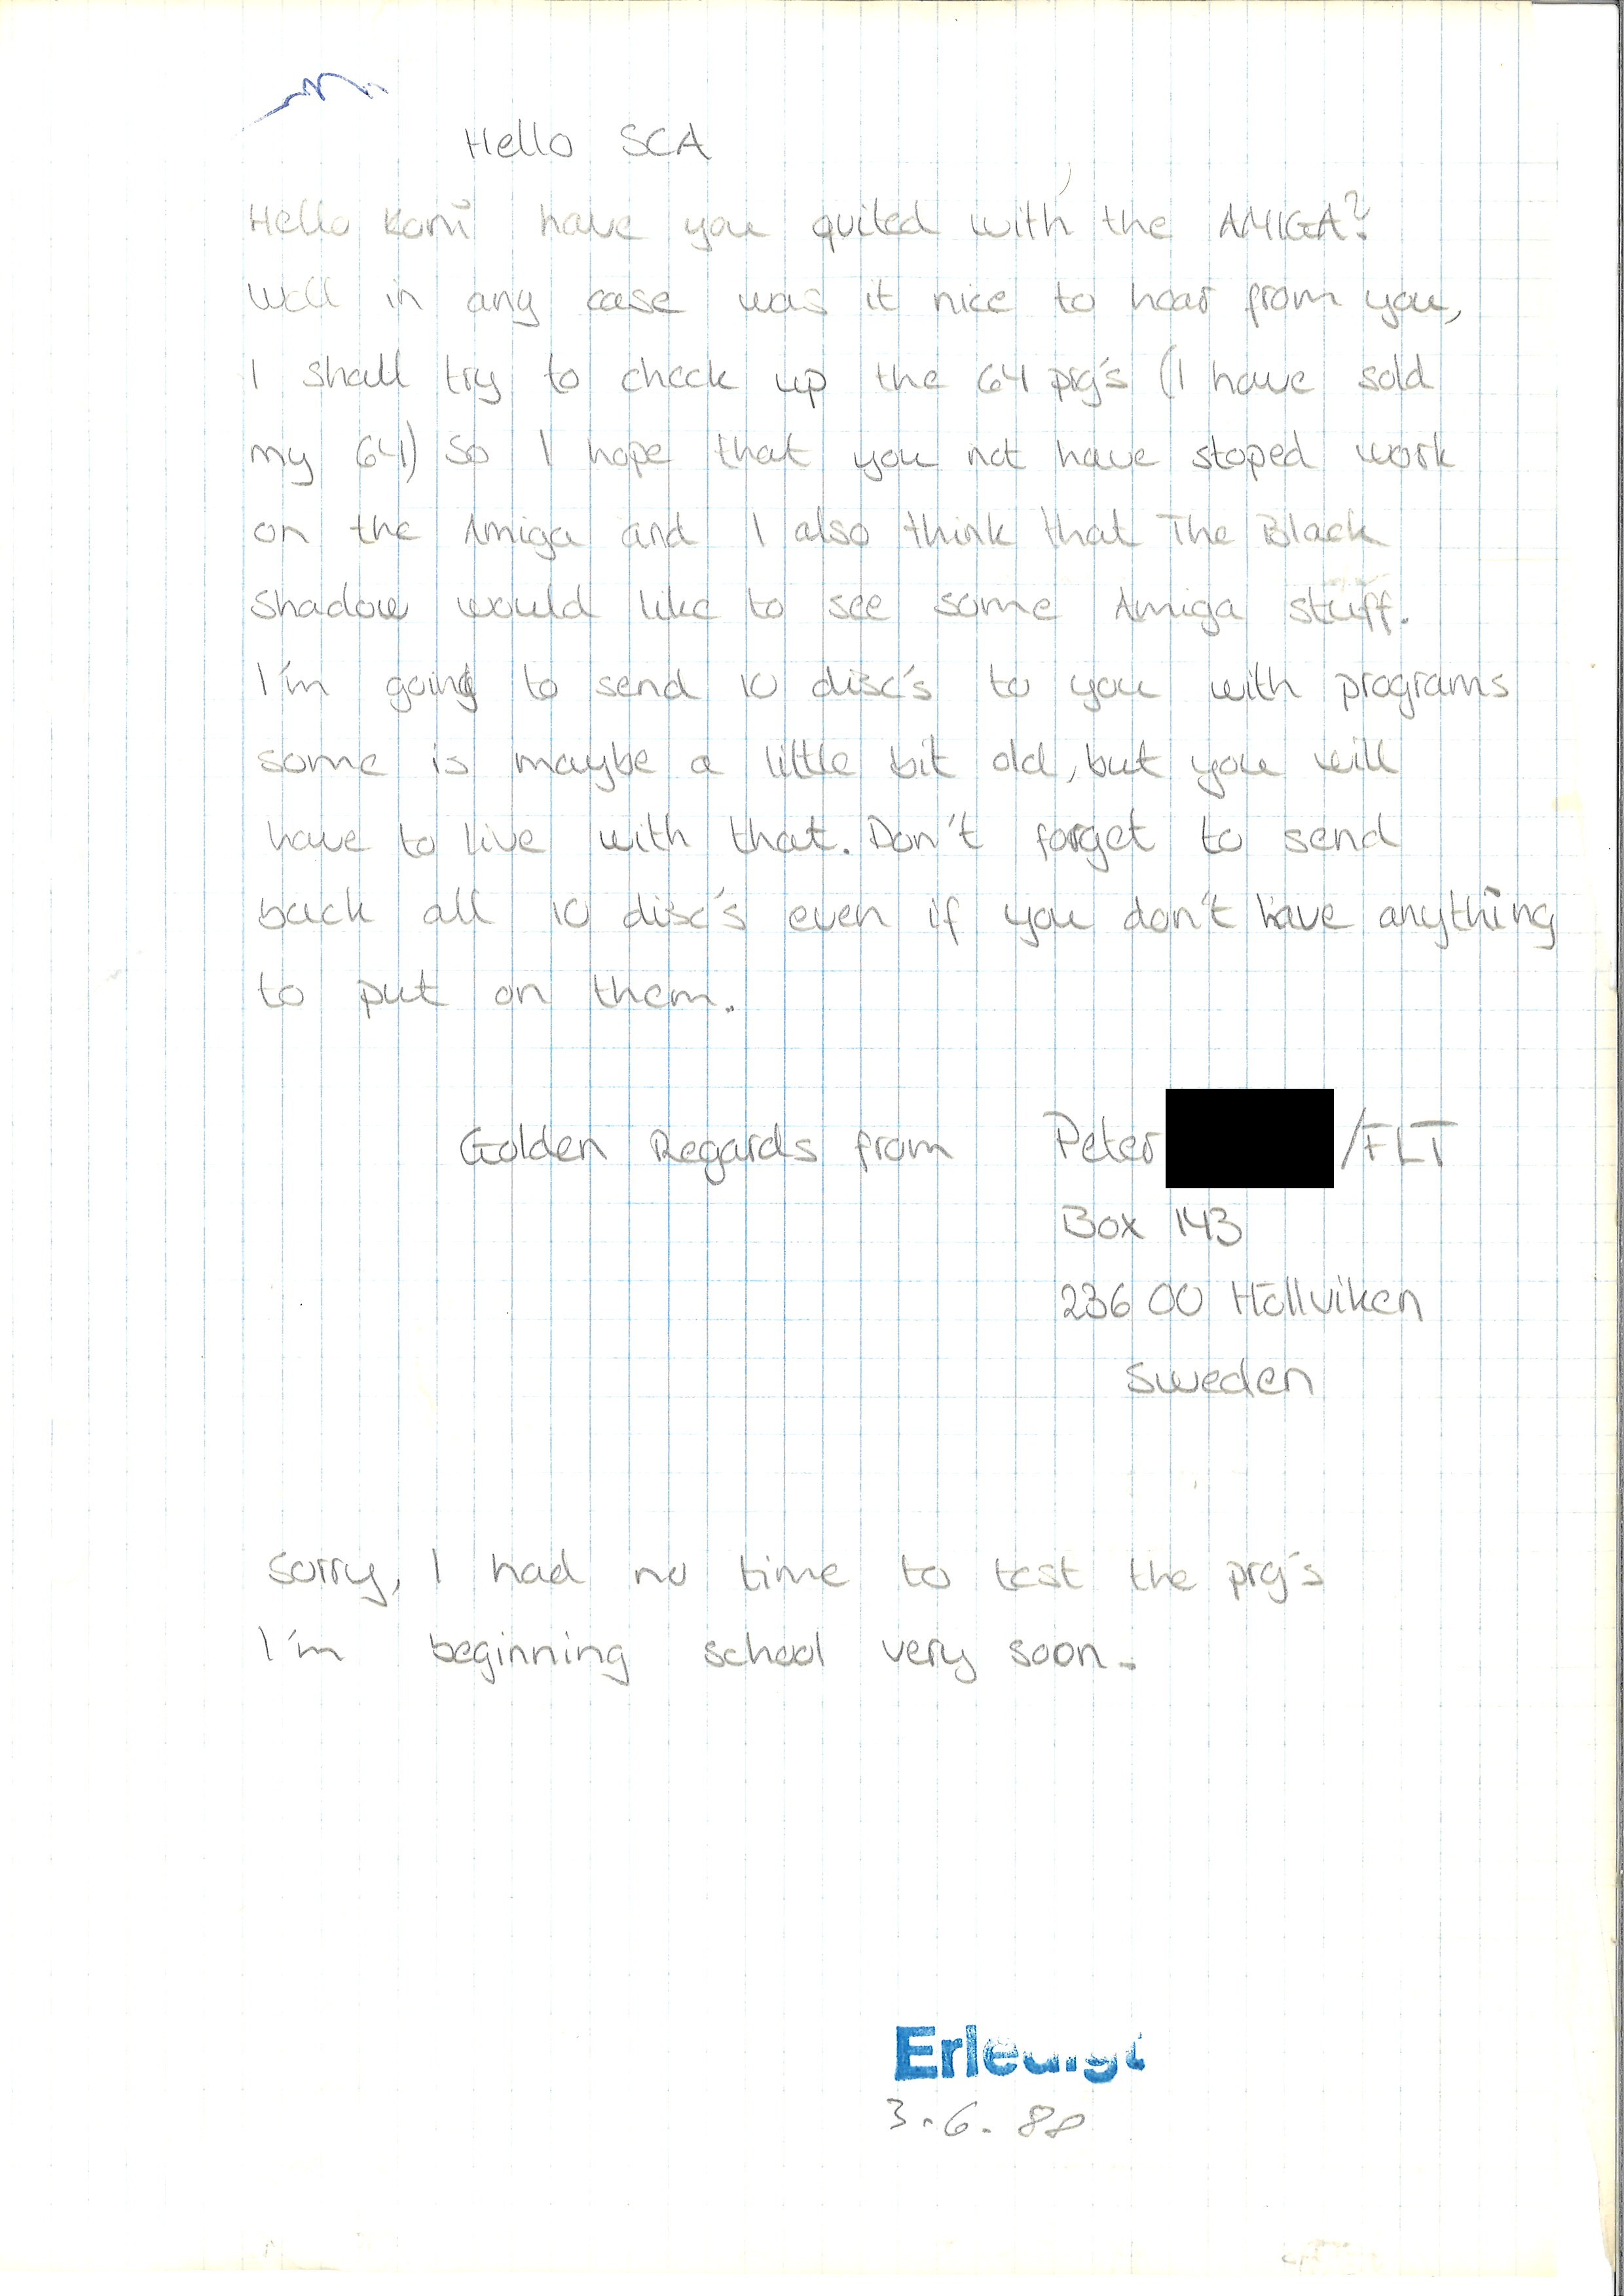 Hello SCA
Hello Komi have you quited with the AMIGA?
Well in any case was it nice to hear from you,
I shall try to check up the 64 prg's (I have sold
my 64) So I hope that you not have stoped work
on the Amiga and I also think that The Black
Shadow would like to see some Amiga stuff.
I'm going to send 10 disc's to you with programs
some is maybe a little bit old, but you will
have to live with that. Don't forget to send
back all 10 disc's even if you don't have anything
to put on them.
Golden Regards from Peter /FLT
Box 143
236 00 Höllviken
Sweden
Sorry, I had no time to test the prg's
I'm beginning school very soon.
Erledigt
3.6.88